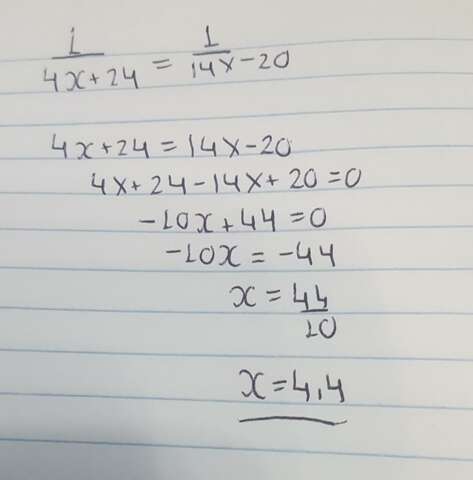 1/4x+24 = 1/14x-20
4x+24=14x-20
4x+24-14x+20=0
-10x+44=0
-10x=-44
x=44/10
x=4,4